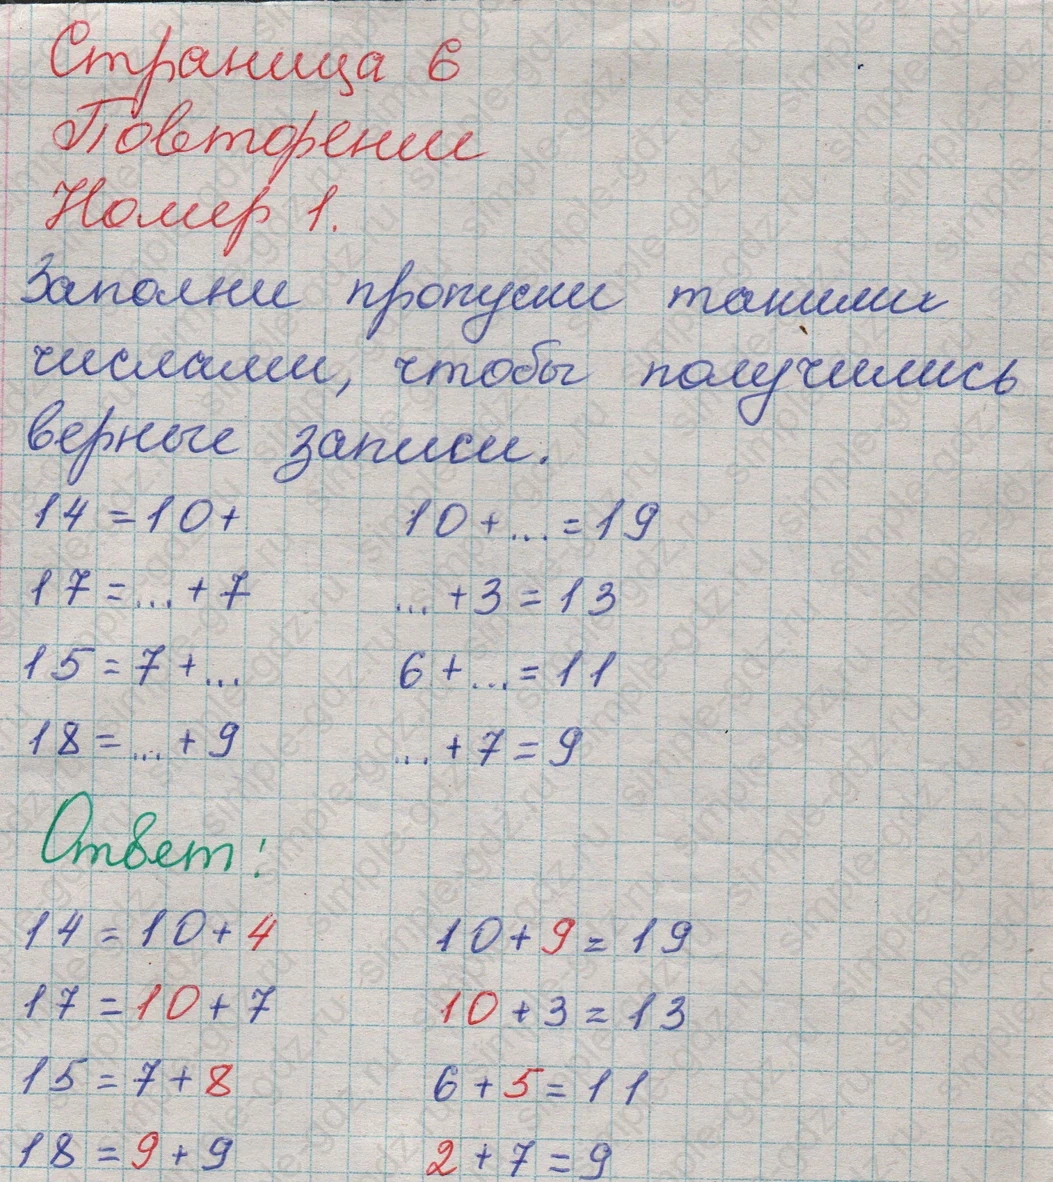 Страница 6
Повторение
Номер 1.
Заполни пропуски такими
числами, чтобы получились
верные записи.
14 = 10 + 10 + ... = 19
17 = ... + 7 ... + 3 = 13
15 = 7 + ... 6 + ... = 11
18 = ... + 9 ... + 7 = 9
Ответ:
14 = 10 + 4 10 + 9 = 19
17 = 10 + 7 10 + 3 = 13
15 = 7 + 8 6 + 5 = 11
18 = 9 + 9 2 + 7 = 9
simple-gdz.ru